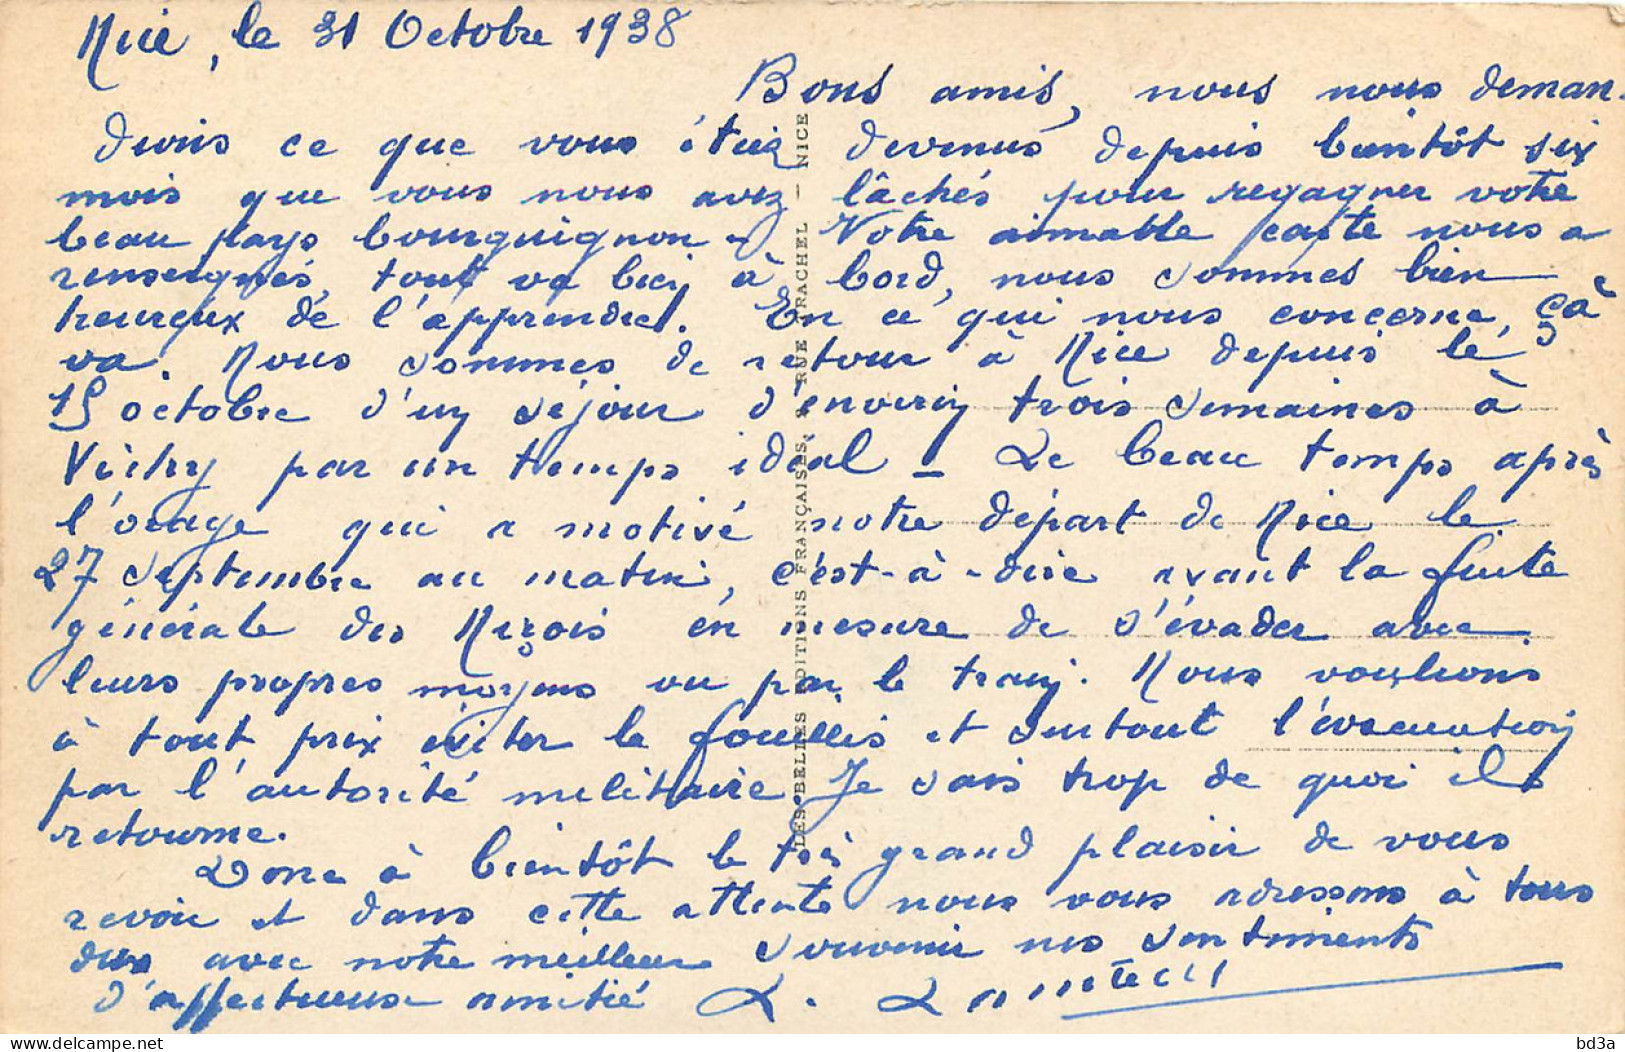 Nice, le 31 Octobre 1938
Bons amis, nous nous deman-
dions ce que vous étiez devenus depuis bientôt six
mois que vous nous avez lâchés pour regagner votre
beau pays bourguignon. Votre aimable carte nous a
renseignés, tout va bien à bord, nous sommes bien
heureux de l'apprendre. En ce qui nous concerne, çà
va. Nous sommes de retour à Nice depuis le
15 octobre d'un séjour d'environ trois semaines à
Vichy par un temps idéal - Le beau temps après
l'orage qui a motivé notre départ de Nice le
27 Septembre au matin, c'est-à-dire avant la fuite
générale des Niçois en mesure de s'évader avec
leurs propres moyens ou par le train. Nous voulions
à tout prix éviter le fouillis et surtout l'évacuation
par l'autorité militaire. Je sais trop de quoi il
retourne.
Donc à bientôt le très grand plaisir de vous
revoir et dans cette attente nous vous adressons à tous
deux avec notre meilleur souvenir nos sentiments
d'affectueuse amitié L.
LES BELLES EDITIONS FRANÇAISES, RUE TRACHEL - NICE
bd3a